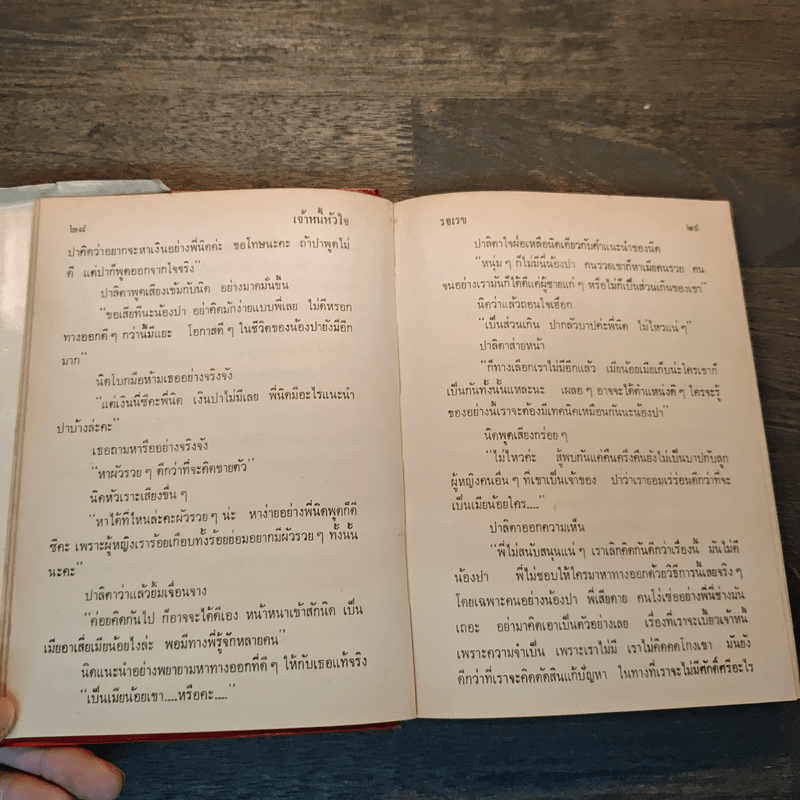 ๒๘
เจ้าหนี้หัวใจ
ปาคิดว่าอยากจะหาเงินอย่างพี่นิดค่ะ ขอโทษนะคะ ถ้าปาพูดไม่
ดี แต่ปาก็พูดออกจากใจจริง”
ปาลิตาพูดเสียงเข้มกับนิด อย่างมาดมั่นขึ้น
“ขอเสียทีนะน้องปา อย่าคิดมักง่ายแบบพี่เลย ไม่ดีหรอก
ทางออกดีๆ กว่านี้มีแยะ โอกาสดีๆ ในชีวิตของน้องปายังมีอีก
มาก”
นิดโบกมือห้ามเธออย่างจริงจัง
“แต่เงินนี่ซีคะพี่นิด เงินปาไม่มีเลย พี่นิดมีอะไรแนะนำ
ปาบ้างล่ะคะ”
เธอถามหารืออย่างจริงจัง
“หาผัวรวยๆ ดีกว่าที่จะคิดขายตัว”
นิดหัวเราะเสียงขื่นๆ
“หาได้ที่ไหนล่ะคะผัวรวยๆ น่ะ หาง่ายอย่างพี่นิดพูดก็ดี
ซีคะ เพราะผู้หญิงเราร้อยเกือบทั้งร้อยย่อมอยากมีผัวรวยๆ ทั้งนั้น
นะคะ”
ปาลิตาว่าแล้วยิ้มเจื่อนจาง
“ค่อยคิดกันไป ก็อาจจะได้ดีเอง หน้าหนาเข้าสักนิด เป็น
เมียอาเสี่ยเมียน้อยไงล่ะ พอมีทางพี่รู้จักหลายคน”
นิดแนะนำอย่างพยายามหาทางออกที่ดีๆ ให้กับเธอแท้จริง
“เป็นเมียน้อยเขา....หรือคะ....”
รอเรข
๒๙
ปาลิตาใจฝ่อเหลือนิดเดียวกับคำแนะนำของนิด
“หนุ่มๆ ก็ไม่มีนี่น้องปา คนรวยเขาก็หาเมียคนรวย คน
จนอย่างเรามันก็ได้ดีแค่ผู้ชายแก่ๆ หรือไม่ก็เป็นส่วนเกินของเขา”
นิดว่าแล้วถอนใจเฮือก
“เป็นส่วนเกิน ปากลัวบาปค่ะพี่นิด ไม่ไหวแน่ๆ”
ปาลิตาส่ายหน้า
“ก็ทางเลือกเราไม่มีอีกแล้ว เมียน้อยเมียเก็บน่ะใครเขาก็
เป็นกันทั้งนั้นแหละนะ เผลอๆ อาจจะได้ตำแหน่งดีๆ ใครจะรู้
ของอย่างนี้เราจะต้องมีเทคนิคเหมือนกันนะน้องปา”
นิดพูดเสียงกร่อยๆ
“ไม่ไหวค่ะ สู้พบกันแค่คืนครึ่งคืนยังไม่เป็นบาปกับลูก
ผู้หญิงคนอื่นๆ ที่เขาเป็นเจ้าของ ปาว่าเรายอมเร่ร่อนดีกว่าที่จะ
เป็นเมียน้อยใคร....”
ปาลิตาออกความเห็น
“พี่ไม่สนับสนุนแน่ๆ เราเลิกคิดกันดีกว่าเรื่องนี้ มันไม่ดี
น้องปา พี่ไม่ชอบให้ใครมาหาทางออกด้วยวิธีการนี้เลยจริงๆ
โดยเฉพาะคนอย่างน้องปา พี่เสียดาย คนโง่เซ่ออย่างพี่นี่ช่างมัน
เถอะ อย่ามาคิดเอาเป็นตัวอย่างเลย เรื่องที่เราจะเบี้ยวเจ้าหนี้
เพราะความจำเป็น เพราะเราไม่มี เราไม่คิดคดโกงเขา มันยัง
ดีกว่าที่เราจะคิดตัดสินแก้ปัญหา ในทางที่เราจะไม่มีศักดิ์ศรีอะไร